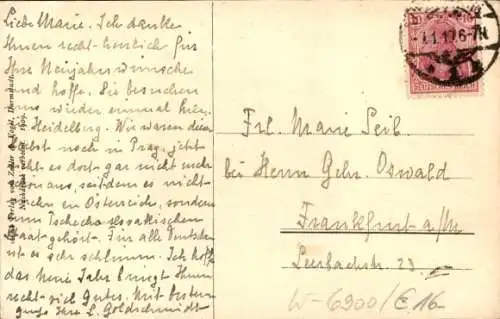 Liebe Marie. Ich danke
Ihnen recht herzlich für
Ihre Neujahrswünsche
und hoffe. Sie besuchen
uns wieder einmal hier,
Heidelberg. Wir waren
noch in Prag, jetzt
es dort gar nicht mehr
aus, seitdem es nicht
in Österreich, sondern
zum Tschechoslovakischen
Staat gehört. Für alle Deutschen
ist es sehr schlimm. Ich hoffe
das neue Jahr bringt Ihnen
recht viel Gutes. Mit besten
Ihre L. Goldschmidt
Frl. Marie Seib.
bei Herrn Gehr. Oswald
Frankfurt a/M.
Leerbachstr. 23.
W-6900/C16